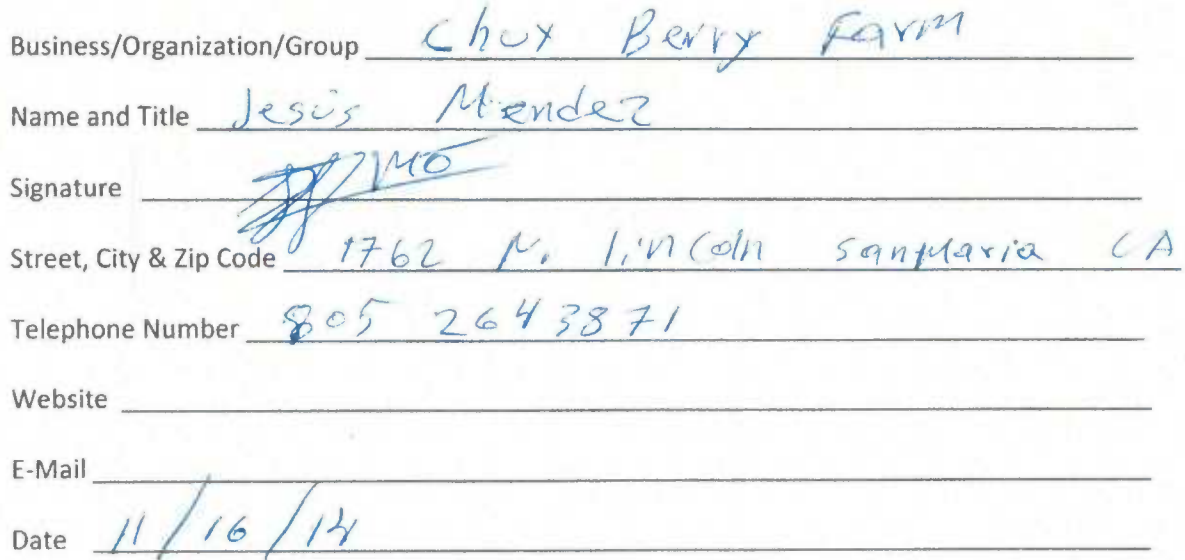 Business/Organization/Group Chuy Berry Farm
Name and Title Jesús Mendez
Signature
Street, City & Zip Code 1762 N. lincoln sanMaria CA
Telephone Number 805 264 3871
Website
E-Mail
Date 11/16/14